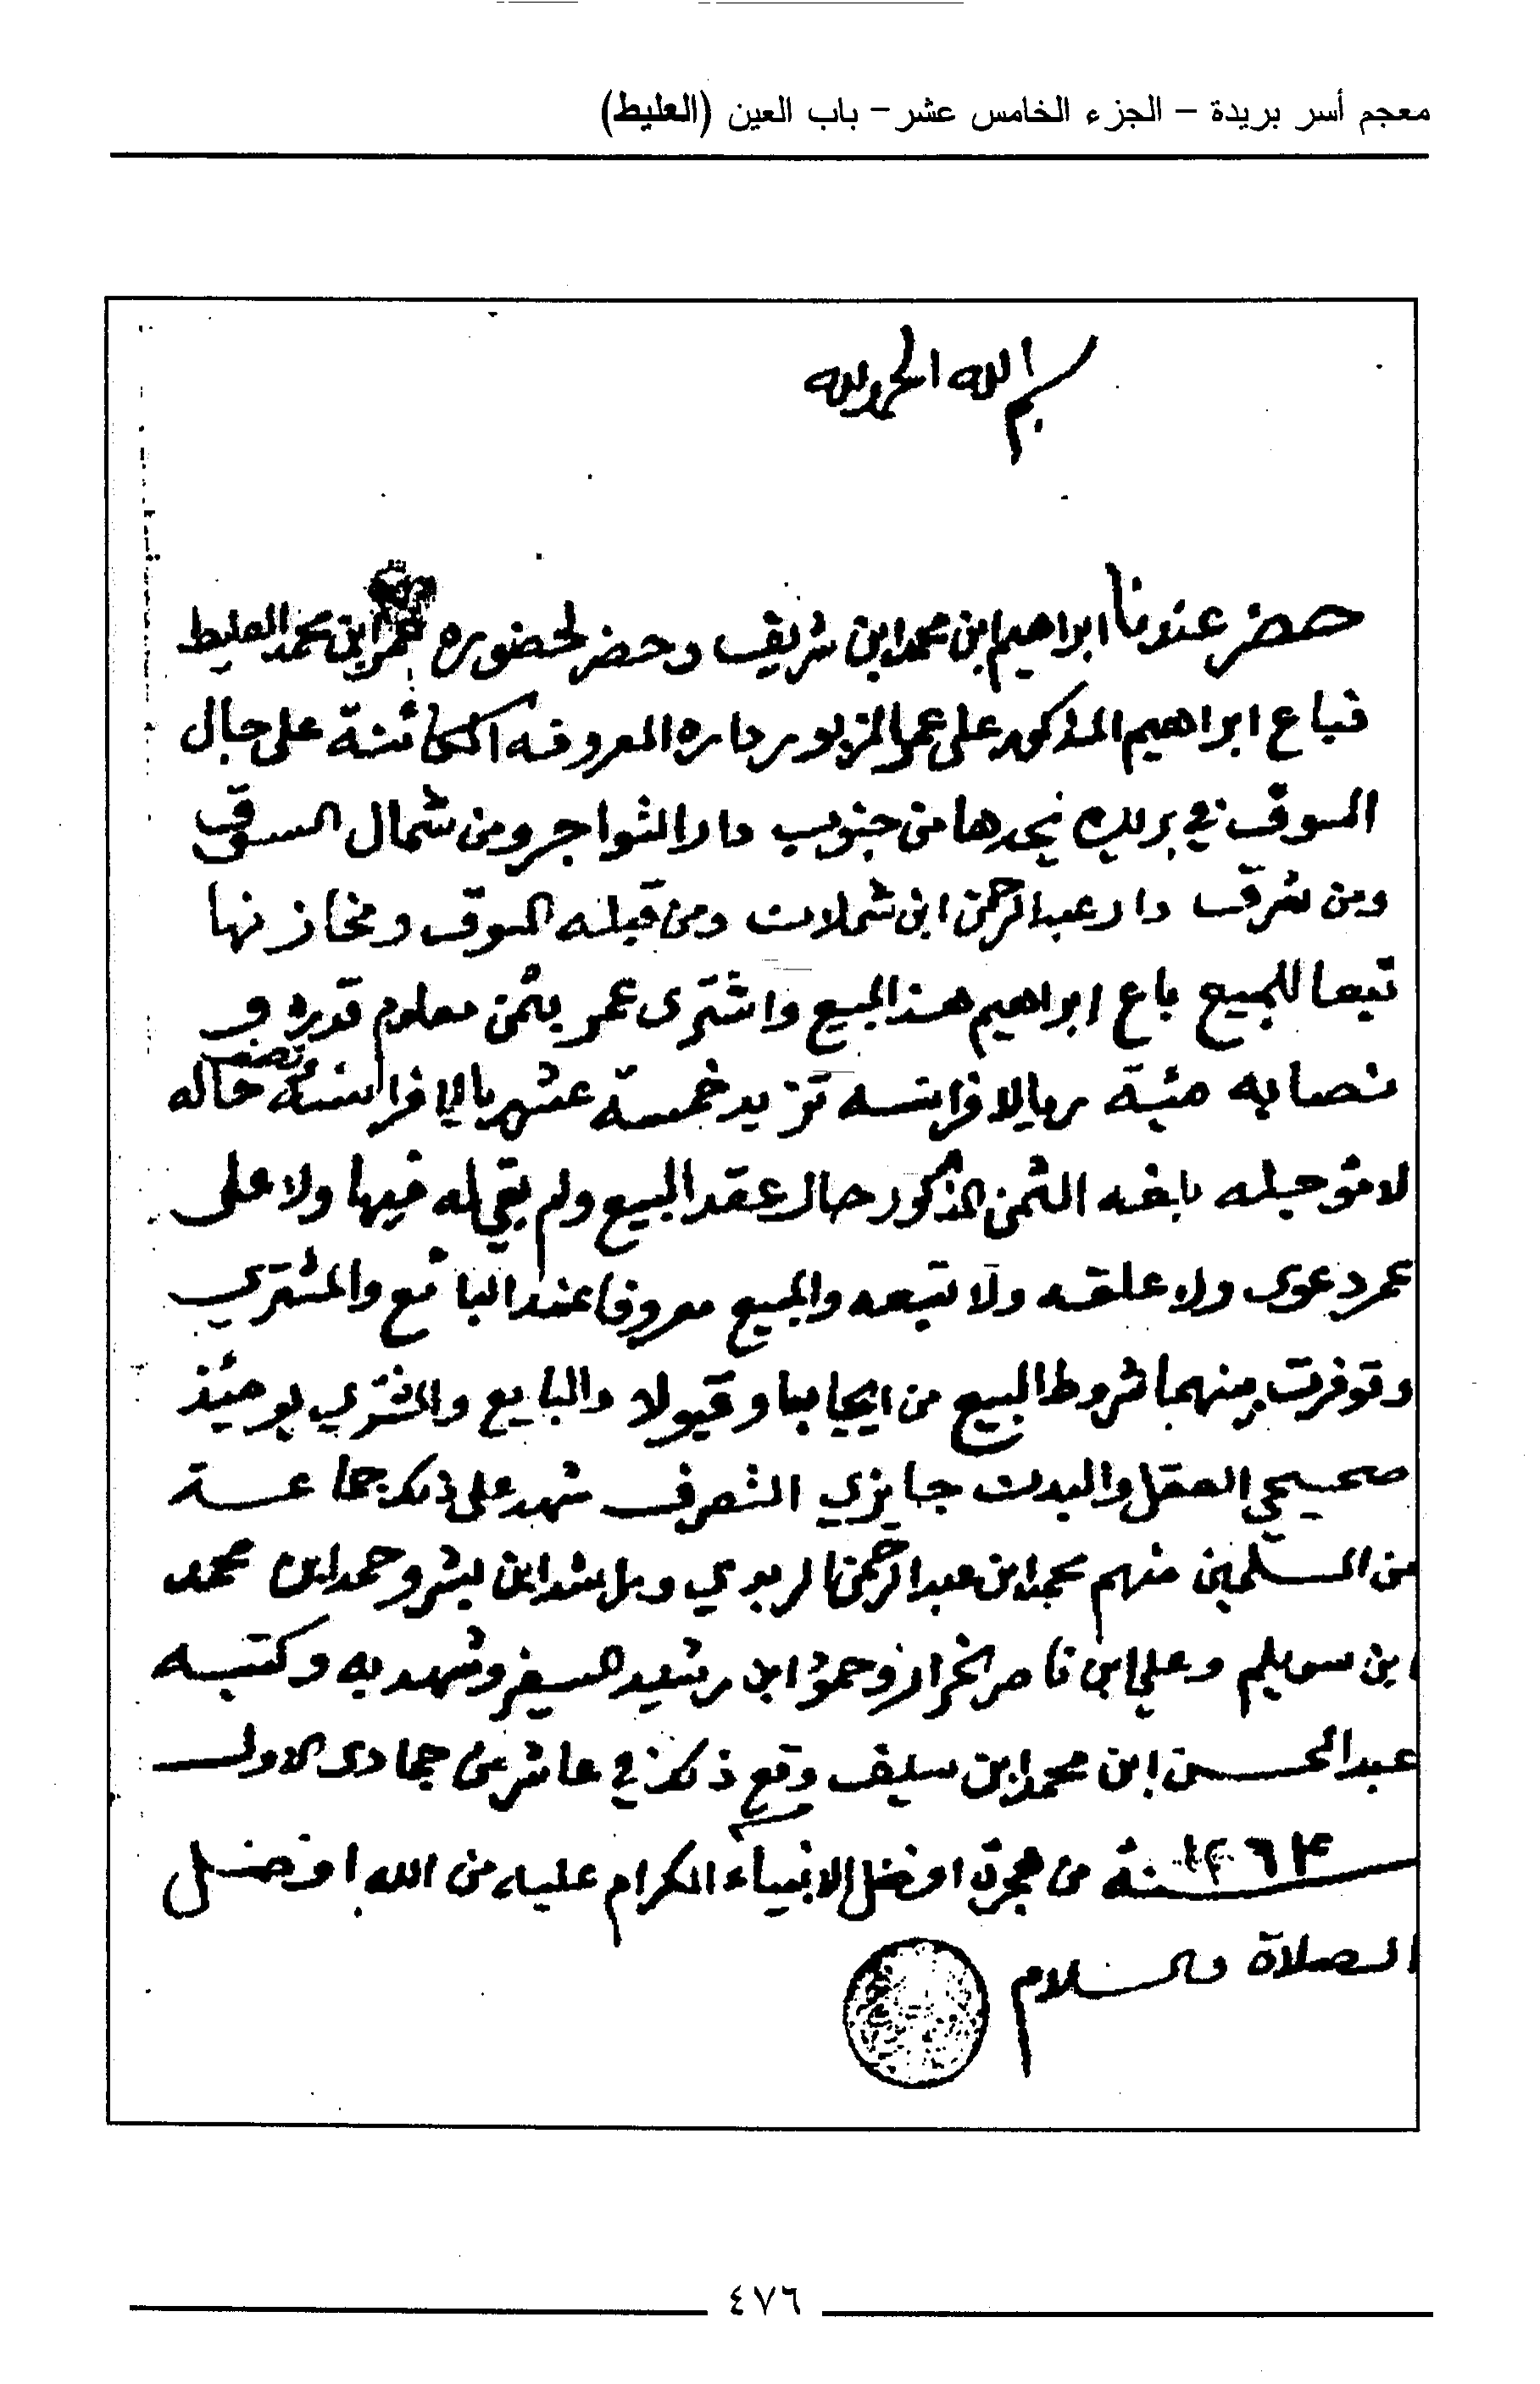 معجم أسر بريدة – الجزء الخامس عشر – باب العين (العليط)
بسم الله الحمد لله
حضر عندنا ابراهيم ابن محمد ابن شريف وحضر لحضوره عمر ابن محمد العليط
فباع ابراهيم المذكور على عمر المزبور داره المعروفه الكائنة على جال
السوق في بريده يحدها من جنوب دار الثواجر ومن شمال السوق
ومن شرق دار عبدالرحمن ابن شملان ومن قبله السوق ومخازنها
تبعا للمبيع باع ابراهيم هذا المبيع واشترى عمر بثمن معلوم قدره في
نصابه مئية ريالا فرانسه تزيد خمسة عشر ريالا فرانسه حاله
لا مؤجله بلغه الثمن المذكور حال عقد البيع ولم بقي له فيها ولا على
عمر دعوى ولا علقه ولا تبعه والمبيع معروفا عند البائع والمشتري
وتوفرت منهما شروط البيع من ايجابا وقبولا والبايع والمشتري يومئذ
صحيحي العقل والبدن جايزي التصرف شهد على ذلك جماعة
من المسلمين منهم محمد ابن عبدالرحمن الربدي وراشد ابن بشر وحمد ابن محمد
ابن سويلم وعلي ابن ناصر الخراز وحمود ابن رشيد السيفر وشهد به وكتبه
عبدالمحسن ابن محمد ابن سيف وقع ذلك في عاشر من جمادى الاول
سنة ١٢٦٤ من هجرة افضل الانبياء الكرام عليه من الله افضل
الصلاة والسلام
٤٧٦